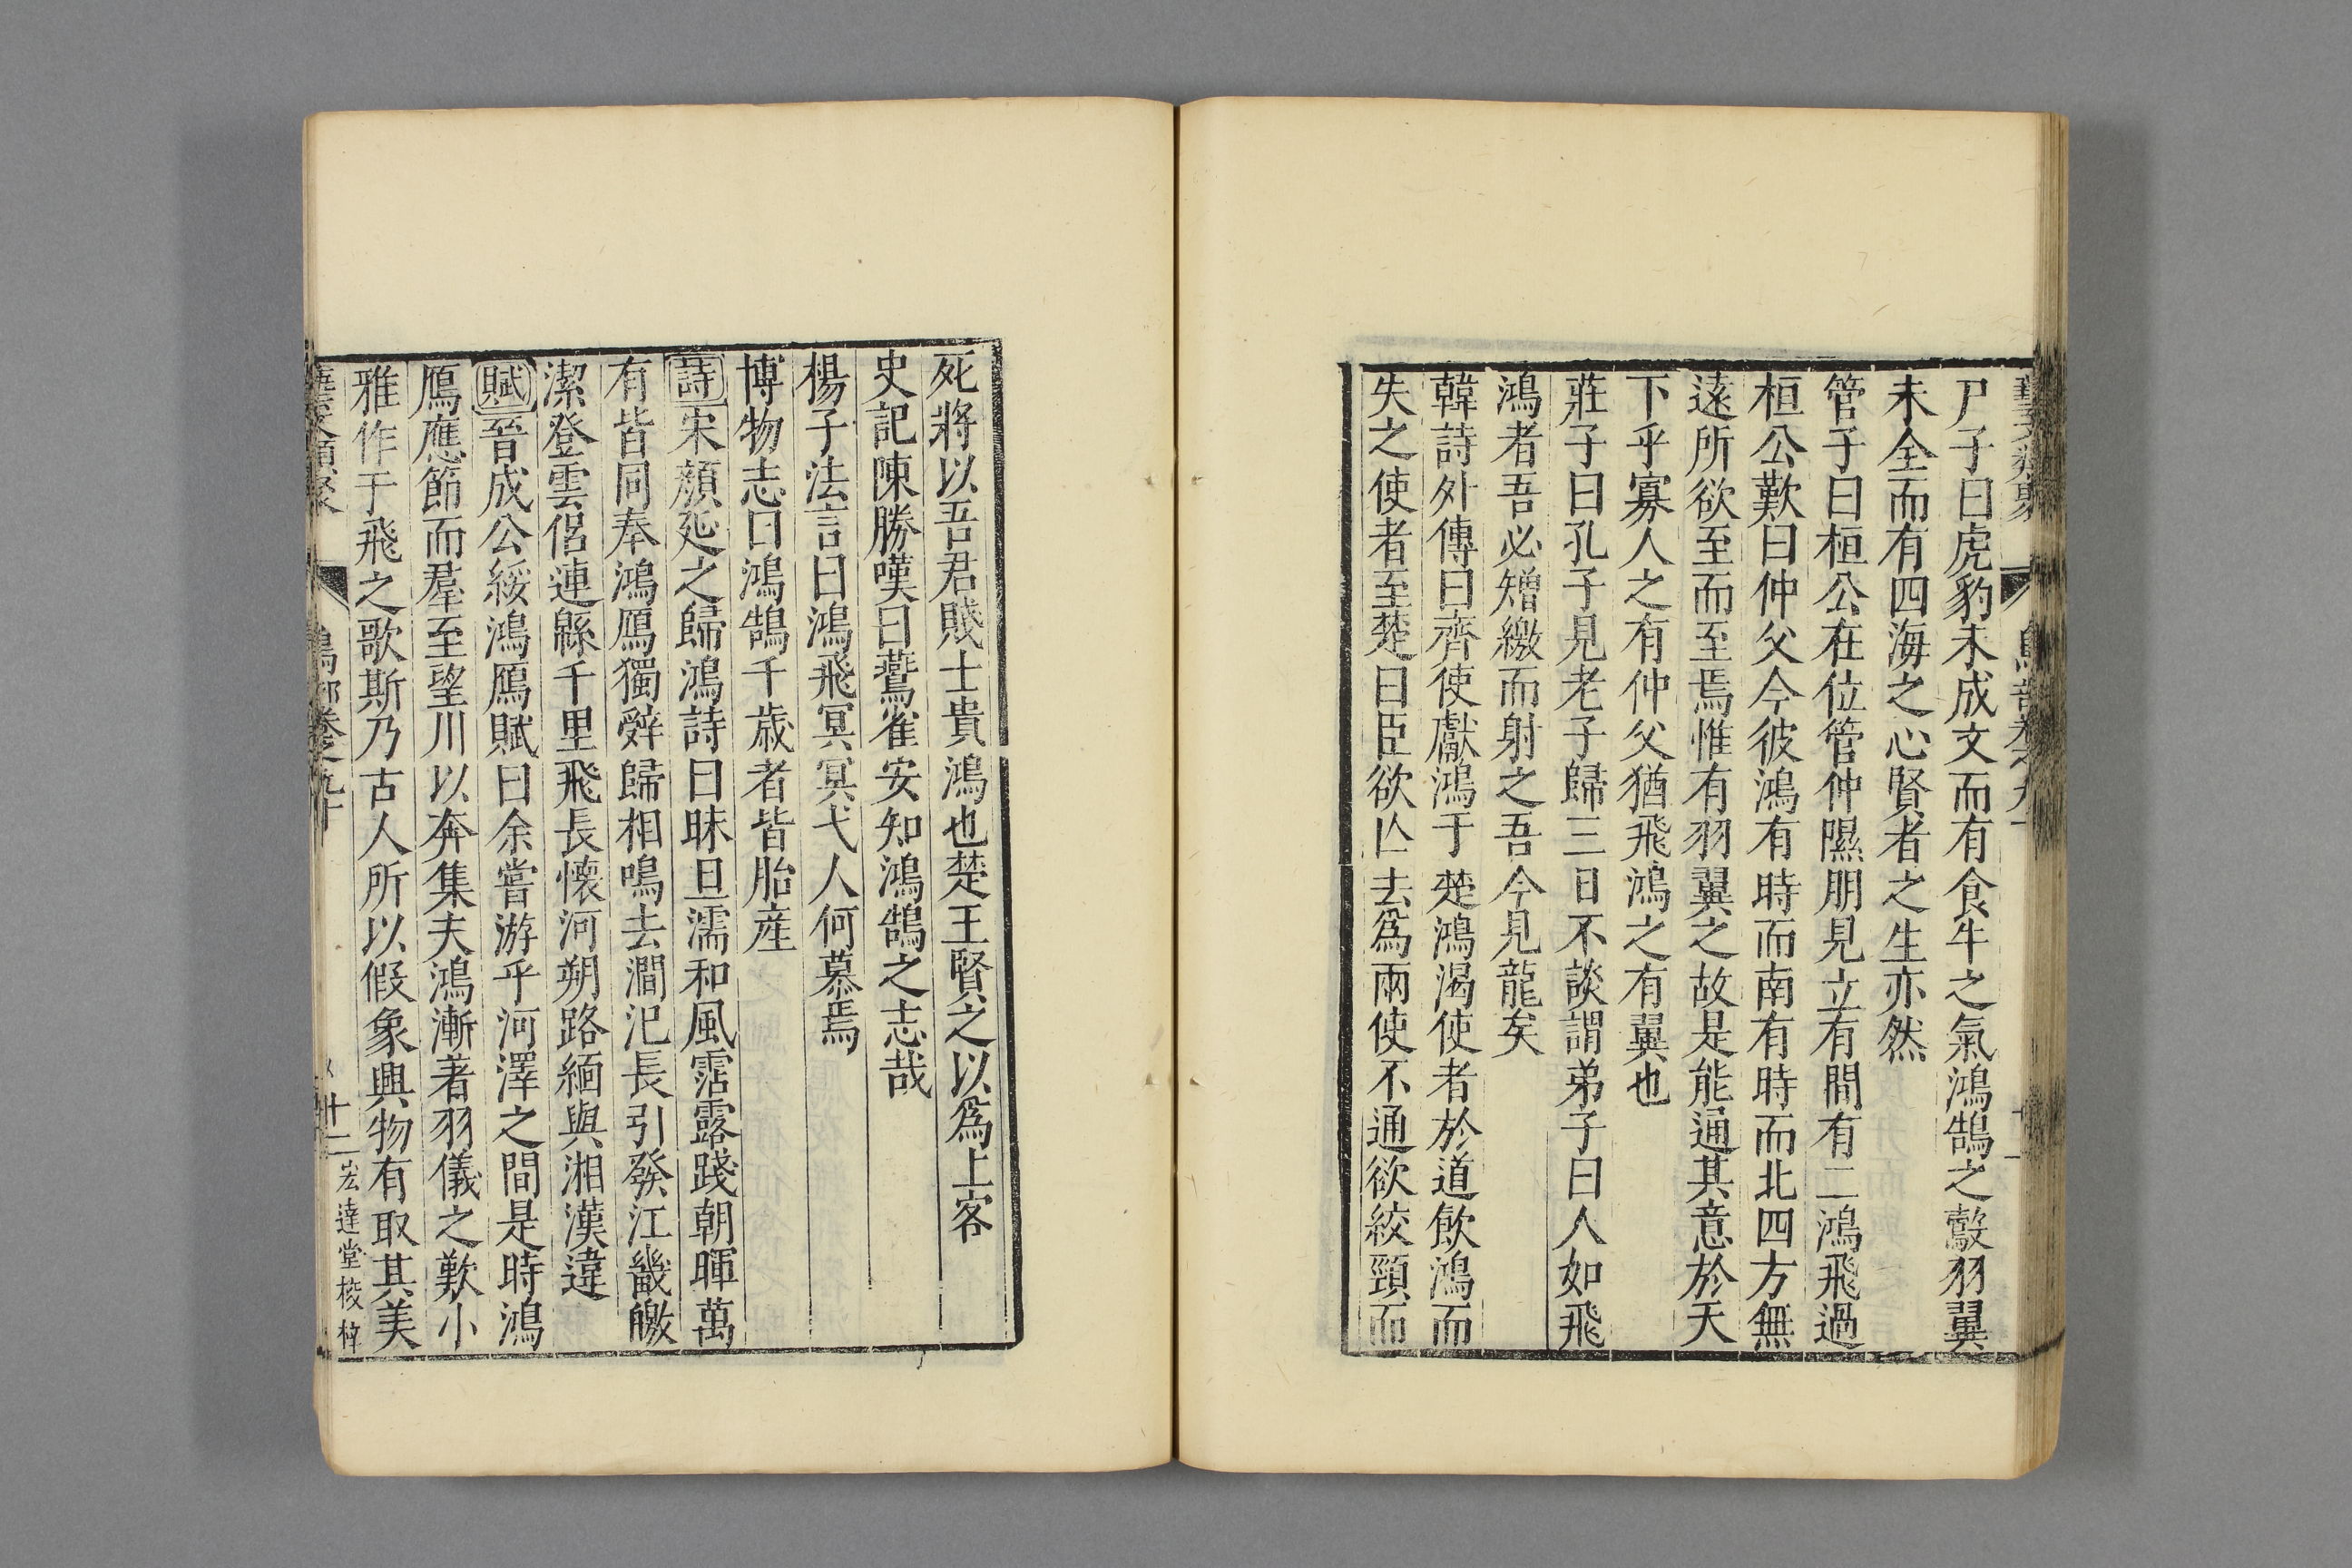 尸子曰虎豹未成文而有食牛之氣鴻鵠之鷇羽翼
未全而有四海之心賢者之生亦然
管子曰桓公在位管仲隰朋見立有間有二鴻飛過
桓公歎曰仲父今彼鴻有時而南有時而北四方無
遠所欲至而至焉惟有羽翼之故是能通其意於天
下乎寡人之有仲父猶飛鴻之有翼也
莊子曰孔子見老子歸三日不談謂弟子曰人如飛
鴻者吾必矰繳而射之吾今見龍矣
韓詩外傳曰齊使獻鴻于楚鴻渴使者於道飲鴻而
失之使者至楚曰臣欲亾去爲兩使不通欲絞頸而
死將以吾君賤士貴鴻也楚王賢之以爲上客
史記陳勝嘆曰鷰雀安知鴻鵠之志哉
楊子法言曰鴻飛冥冥弋人何慕焉
博物志曰鴻鵠千歲者皆胎産
詩宋顏延之歸鴻詩曰昧旦濡和風霑露踐朝暉萬
有皆同奉鴻鴈獨辭歸相鳴去澗汜長引發江畿皦
潔登雲侶連緜千里飛長懷河朔路緬與湘漢違
賦晉成公綏鴻鴈賦曰余嘗游乎河澤之間是時鴻
鴈應節而羣至望川以奔集夫鴻漸著羽儀之歎小
雅作于飛之歌斯乃古人所以假象興物有取其美
藝文類聚 鳥部卷之九十 十二 宏達堂校梓